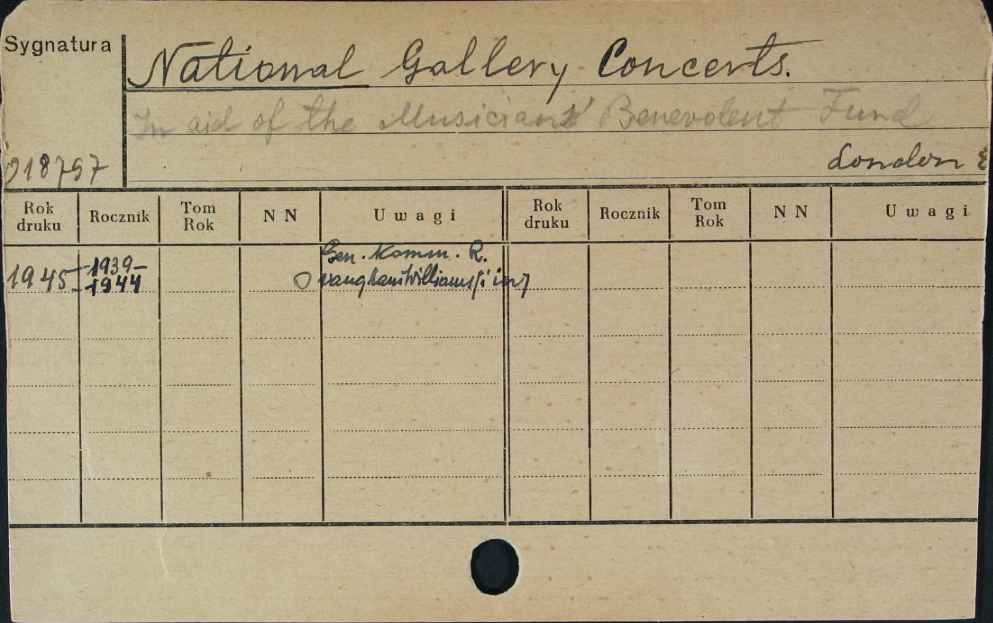 Sygnatura
National Gallery Concerts.
In aid of the Musicians' Benevolent Fund
018797
London
Rok druku Rocznik Tom Rok NN Uwagi Rok druku Rocznik Tom Rok NN Uwagi
1945 1939-1944 Gen. Komm. R.
Vaughan Williams [i in]